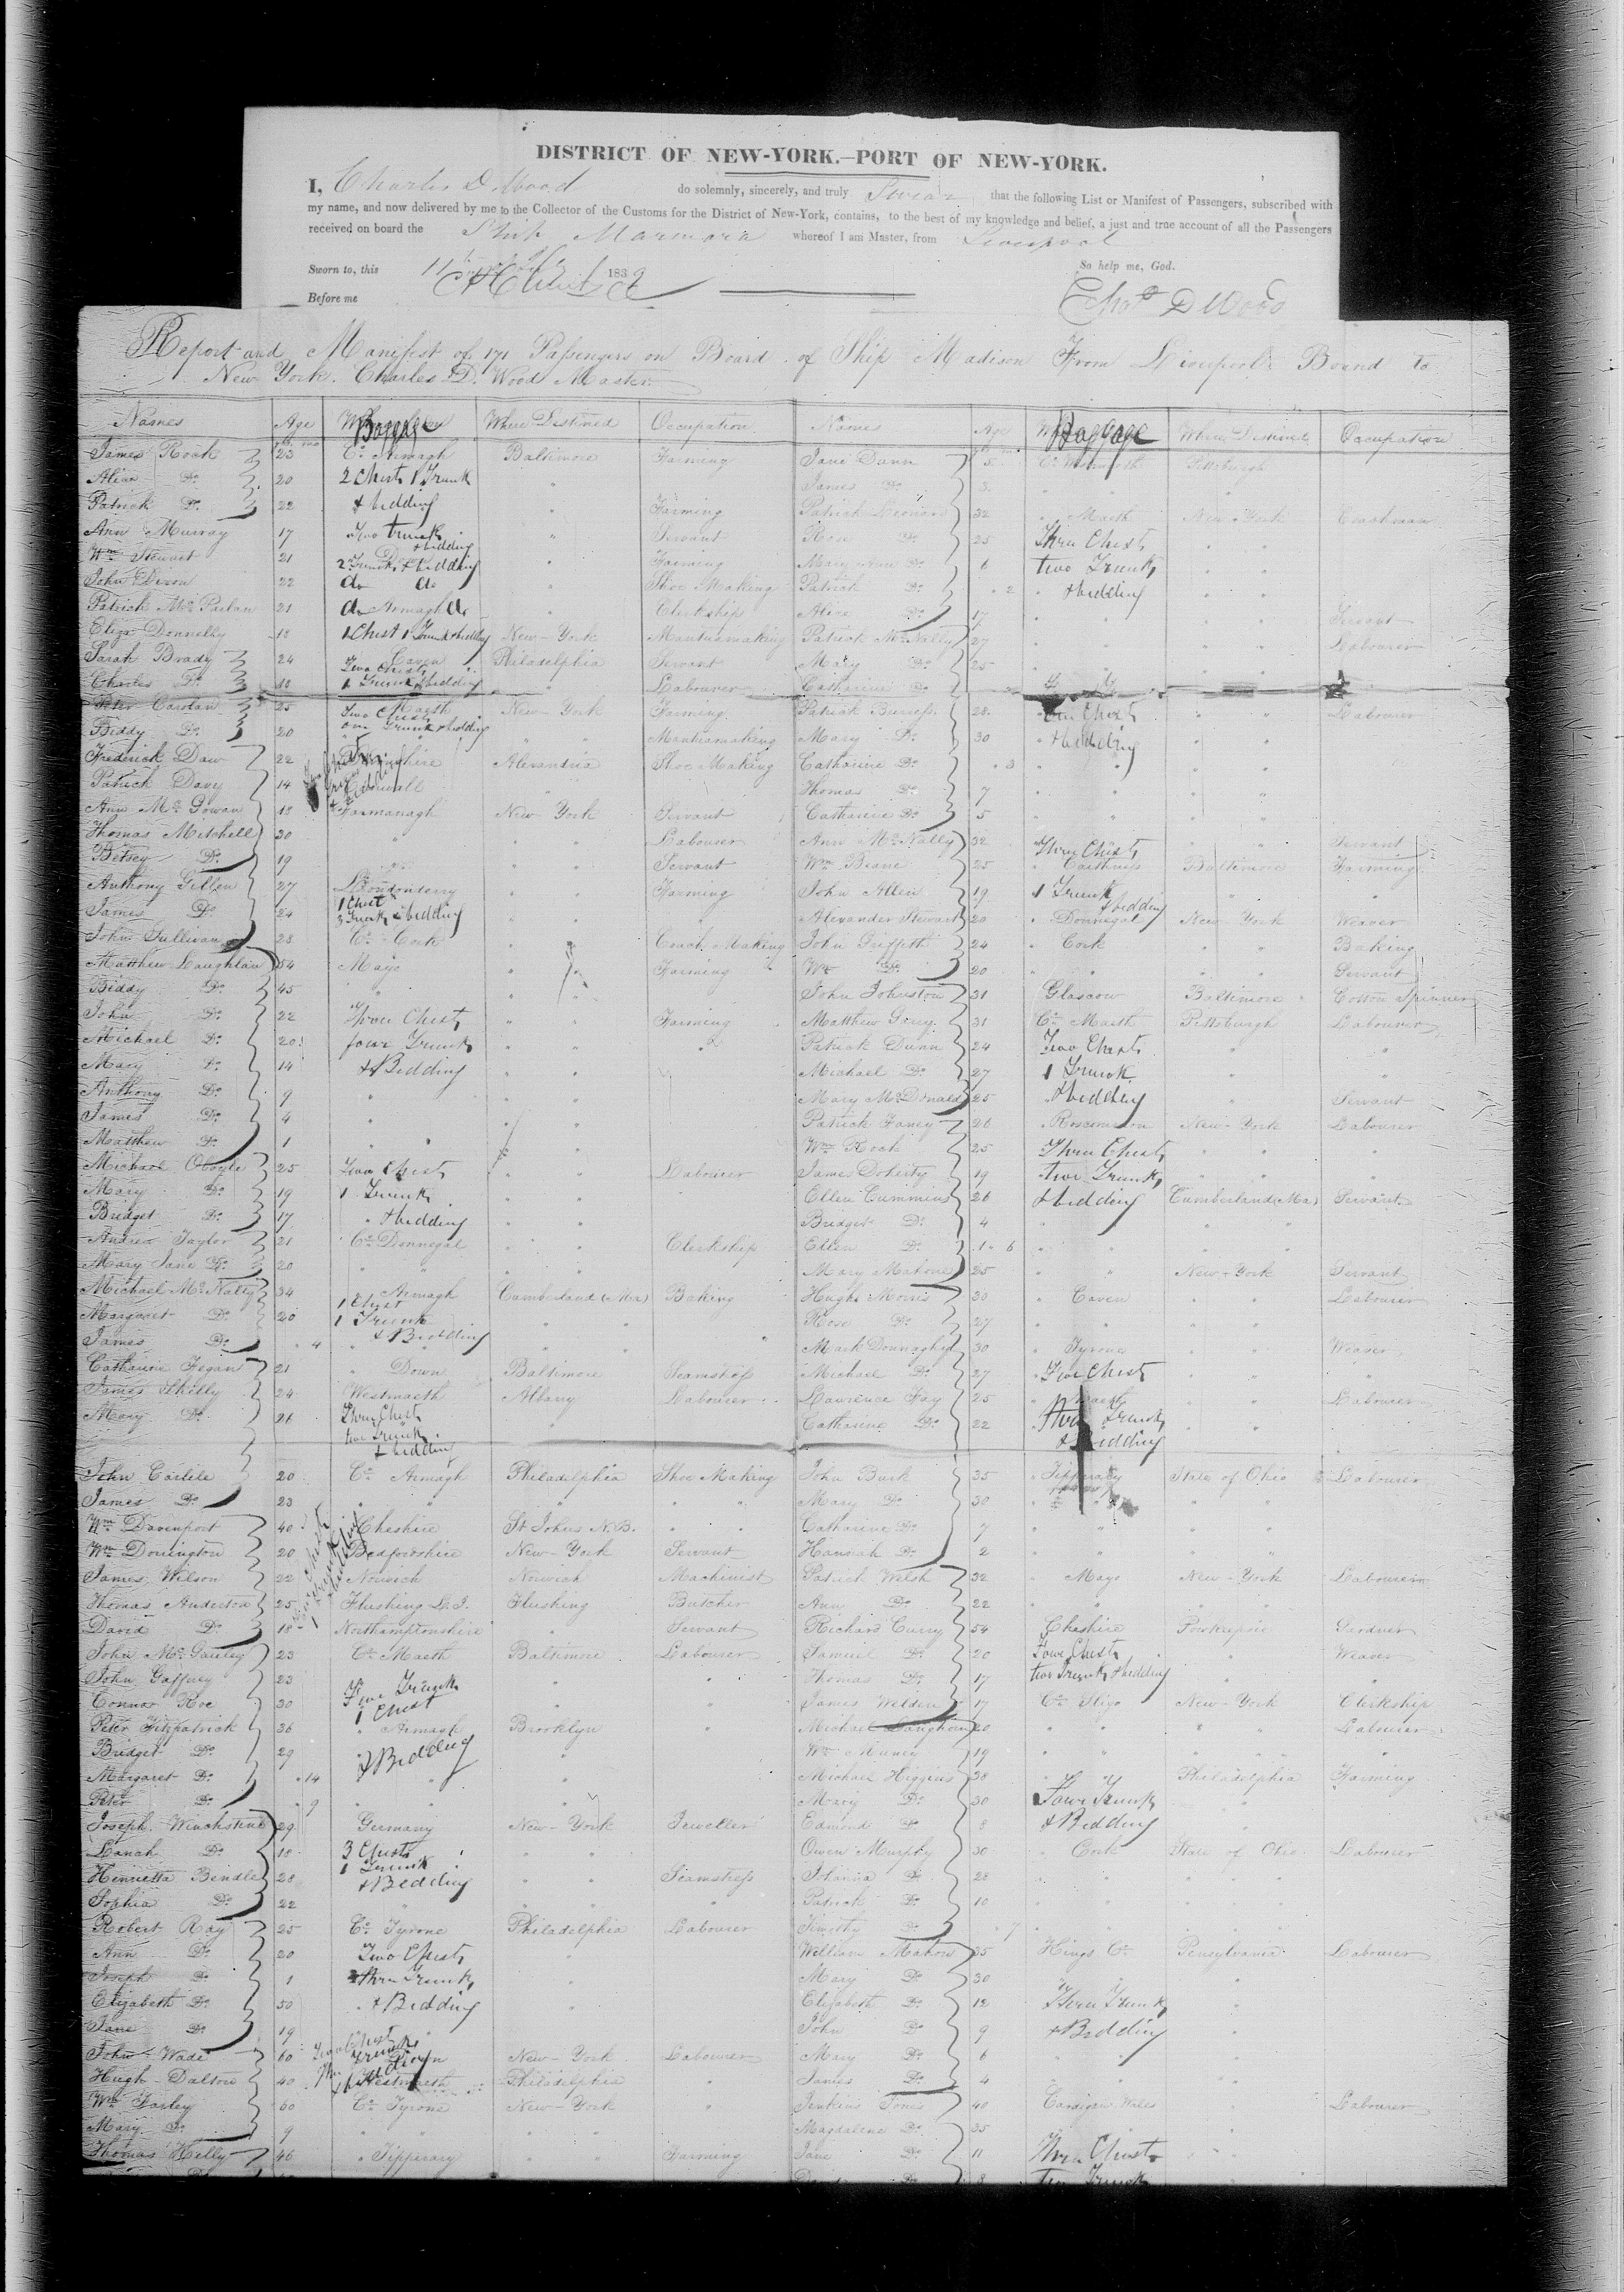 DISTRICT OF NEW-YORK.—PORT OF NEW-YORK.
I, Charles D. Wood do solemnly, sincerely, and truly Swear that the following List or Manifest of Passengers, subscribed with
my name, and now delivered by me to the Collector of the Customs for the District of New-York, contains, to the best of my knowledge and belief, a just and true account of all the Passengers
received on board the Ship whereof I am Master, from Liverpool
Sworn to, this 11th 183 So help me, God.
Before me Chas D Wood
Report and Manifest of 171 Passengers on Board of Ship Madison From Liverpool Bound to
New York. Charles D. Wood Master
Names Age Baggage Where Destined Occupation
James Rook 23 Co. Armagh Baltimore Farming
Alice Do. 20 2 Chests 1 Trunk "
Patrick Do. 22 & bidding " Farming
Ann Murray 17 Two trunks & bidding " Servant
Wm Stewart 21 2 Trunks & bidding " Farming
John Dixon 22 do do " Shoe Making
Patrick Mc Parlan 21 do Armagh do Clerkship
Eliza Donnelly 18 1 Chest 1 Trunk & bidding New-York Mantuamaking
Sarah Brady 24 Caven Two Chests Philadelphia Servant
Charles Do. 18 1 Trunk & bidding " Labourer
Peter Carolan 25 Maeth Two Chests New York Farming
Biddy Do. 20 one Trunk & bidding " " Mantuamaking
Frederick Daw 22 Alexandria Shoe Making
Patrick Davy 14 Cornwall "
Ann Mc Gowan 18 Farmanagh New York Servant
Thomas Mitchell 30 " " " Labourer
Betsey Do. 19 " " " Servant
Anthony Gillen 27 Londonderry 1 Chest " " Farming
James Do. 24 3 Trunk & bidding " " "
John Sullivan 28 Co. Cork " " Coach Making
Matthew Laughlan 54 Mayo " " Farming
Biddy Do. 45 " " "
John Do. 22 Three Chests " " Farming
Michael Do. 20 four Trunks " " "
Mary Do. 14 & Bidding " "
Anthony Do. 9 " " "
James Do. 4 " " "
Matthew Do. 1 " " "
Michael Oboyle 25 Two Chests " " Labourer
Mary Do. 19 1 Trunk " "
Bridget Do. 17 & bidding " "
Andrew Taylor 21 Co. Donnegal " " Clerkship
Mary Jane Do. 20 " " " "
Michael Mc Nally 34 Armagh 1 Chest Cumberland (Ma) Baking
Margaret Do. 20 1 Trunk " "
James Do. " 4 & Bidding " " "
Catharine Fegan 21 " Down Baltimore Seamstress
James Skelly 24 Westmaeth Albany Labourer
Mary Do. 21 Three Chests two Trunks & bidding "
John Carlile 20 Co. Armagh Philadelphia Shoe Making
James Do. 23 " " " " "
Wm Davenport 40 Cheshire St Johns N.B. " "
Wm Donington 20 Bedfordshire New-York Servant
James Wilson 22 Norwich Norwich Machinist
Thomas Anderton 25 Flushing L. I. Flushing Butcher
David Do. 18 Northamptonshire " Servant
John Mc Gauley 23 Co. Maeth Baltimore Labourer
John Gaffney 23 " "
Connor Roe 30 1 Chest " "
Peter Fitzpatrick 36 " Armagh Brooklyn "
Bridget Do. 29 & Bidding "
Margaret Do. " 14 " "
Peter Do. " 9 " "
Joseph Winchstine 29 Germany New-York Jeweller
Do. 18 3 Chests " "
Henrietta Bindle 28 1 Trunk & Bedding " " Seamstress
Sophia Do. 22 " " " "
Robert Ray 25 Co. Tyrone Philadelphia Labourer
Ann Do. 20 Two Chests "
Joseph Do. 1 three Trunks "
Elizabeth Do. 50 & Bidding "
Jane Do. 19 "
John Wade 60 Two Chest New-York Labourer
Hugh Dalton 40 Westmaeth Philadelphia "
Wm Farley 60 Co. Tyrone New-York "
Mary Do. 9 " " " "
Thomas Kelly 46 " Tipperary " " Farming
Names Age Baggage Where Destined Occupation
Jane Dunn 5 Pittsburgh
James Do. 3 " " "
Patrick Leonard 32 " Maeth New-York Coachman
Rose Do. 25 Three Chests " "
Mary Ann Do. 6 two Trunks " "
Patrick Do. " 2 & bidding " "
Alice Do. 17 " " " " Servant
Patrick Mc Nally 27 " " " " Labourer
Mary Do. 25 " " " "
Catharine Do.
Patrick Burness 28 Chests " " Labourer
Mary Do. 30 & bidding " "
Catharine Do. " 3 " " "
Thomas Do. 7 " " " "
Catharine Do. 5 " " " "
Ann Mc Nally 32 Three Chests " " Servant
Wm Beane 25 Caithness Baltimore Farming
John Allen 19 1 Trunk & bidding " "
Alexander Stewart 20 Donnegal New-York Weaver
John Griffith 24 " Cork " " Baking
Wm Do. 20 " " " " Servant
John Johnston 31 Glascow Baltimore Cotton Spinner
Matthew Gray 31 Co. Maeth Pittsburgh Labourer
Patrick Dunn 24 Two Chests " "
Michael Do. 27 1 Trunk " "
Mary Mc Donald 25 & bidding " Servant
Patrick Faney 26 Roscommon New-York Labourer
Wm Rock 25 Three Chests " " "
James Doherty 19 two Trunks " " "
Ellen Cummins 26 & bidding Cumberland (Ma) Servant
Bridget Do. 4 " " "
Ellen Do. 1 " 6 " " "
Mary Malone 25 " " New-York Servant
Hugh Morris 30 " Caven " " Labourer
Rose Do. 27 " " " "
Mark Donnaghy 30 " Tyrone " " Weaver
Michael Do. 27 Chest " " "
Lawrence Fay 25 " Maeth " " Labourer
Catharine Do. 22 two Trunks & Bidding " "
John Burk 35 " Tipperary State of Ohio Labourer
Mary Do. 30 " "
Catharine Do. 7 " " " "
Hannah Do. 2 " " " "
Patrick Welsh 32 " Mayo New-York Labourer
Ann Do. 22 " " " "
Richard Curry 54 Cheshire Powkepsie Gardner
Samuel Do. 20 four Chests " Weaver
Thomas Do. 17 two Trunks & bidding " "
James Welden 17 Co. Sligo New-York Clerkship
Michael 20 " " " " Labourer
Wm 19 " " " " "
Michael Higgins 38 " " Philadelphia Farming
Mary Do. 30 Four Trunks "
Edmond Do. 8 & Bedding "
Owen Murphy 30 " Cork State of Ohio Labourer
Johanna Do. 28 " " " "
Patrick Do. 10 " " " "
Timothy Do. " 7 " " " "
William Mahon 35 Kings Co. Pensylvania Labourer
Mary Do. 30 " " "
Elizabeth Do. 12 Three Trunks "
John Do. 9 & Bidding "
Mary Do. 6 " " "
James Do. 4 " " "
Jenkins Jones 40 Cardigan Wales " Labourer
Magdalena Do. 35 "
Jane Do. 11 Three Chests "
Do. 8 two Trunks